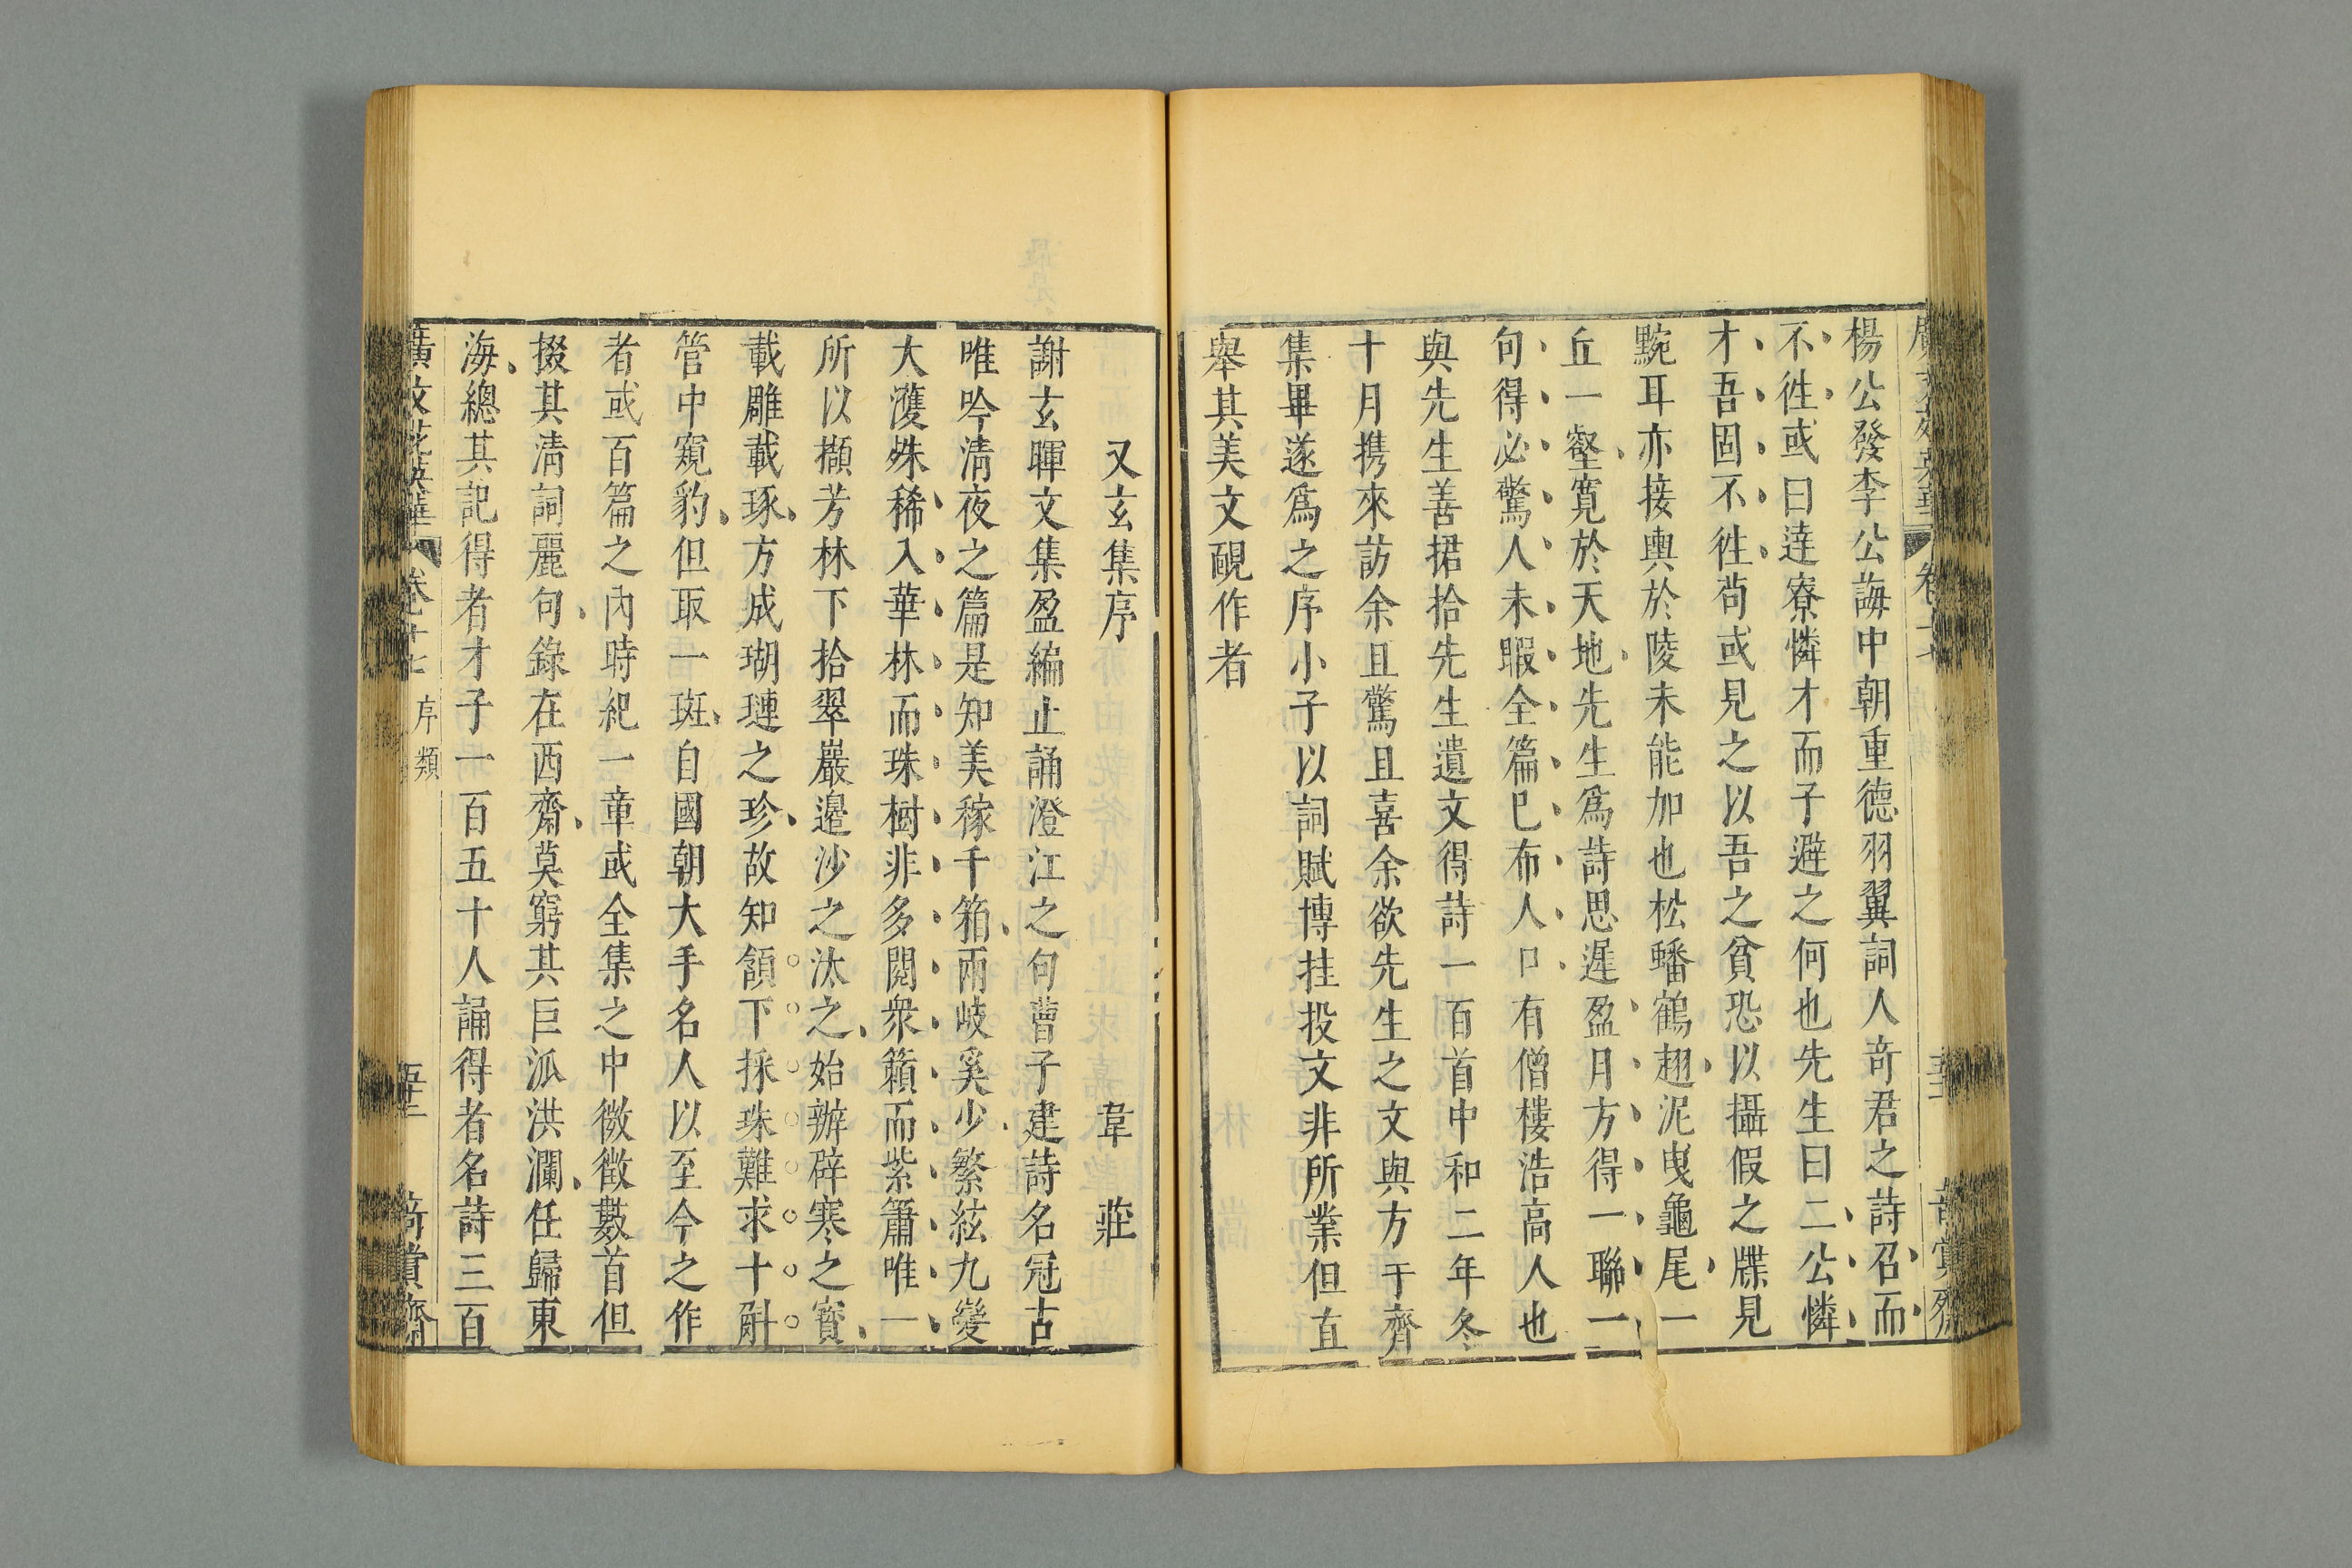 楊公發李公誨中朝重德羽翼詞人竒君之詩召而
不徃或曰達寮憐才而子避之何也先生曰二公憐
才吾固不徃茍或見之以吾之貧恐以攝假之牒見
黦耳亦接輿於陵未能加也松蟠鶴翅泥曳龜尾一
丘一壑寛於天地先生爲詩思遲盈月方得一聯一
句得必驚人未暇全篇巳布人口有僧樓浩高人也
與先生善捃拾先生遺文得詩一百首中和二年冬
十月携來訪余且驚且喜余欲先生之文與方干齊
集畢遂爲之序小子以詞賦博挂投文非所業但直
舉其美文覼作者
又玄集序 韋莊
謝玄暉文集盈編止誦澄江之句曹子建詩名冠古
唯吟淸夜之篇是知美稼千箱兩岐奚少繁絃九變
大濩殊稀入華林而珠樹非多閱衆籟而紫簫唯一
所以擷芳林下拾翠巖邉沙之汰之始辦辟寒之寳
載雕載琢方成瑚璉之珍故知頷下採珠難求十斛
管中窺豹但取一斑自國朝大手名人以至今之作
者或百篇之內時紀一章或全集之中微徵數首但
掇其淸詞麗句錄在西齋莫窮其巨派洪瀾任歸東
海總其記得者才子一百五十人誦得者名詩三百
廣文苑英華 卷十七 序類